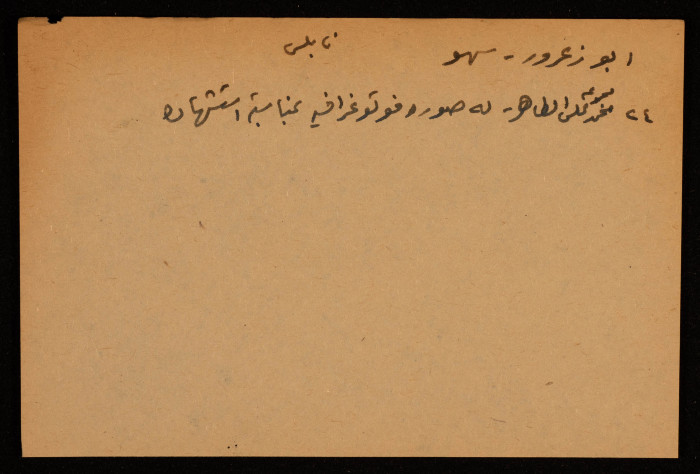 ابو زعرور - سهو نابلس
٢٤ مجموعة محمد علي الطاهر - له صوره فوتوغرافيه بمناسبة استشهاده